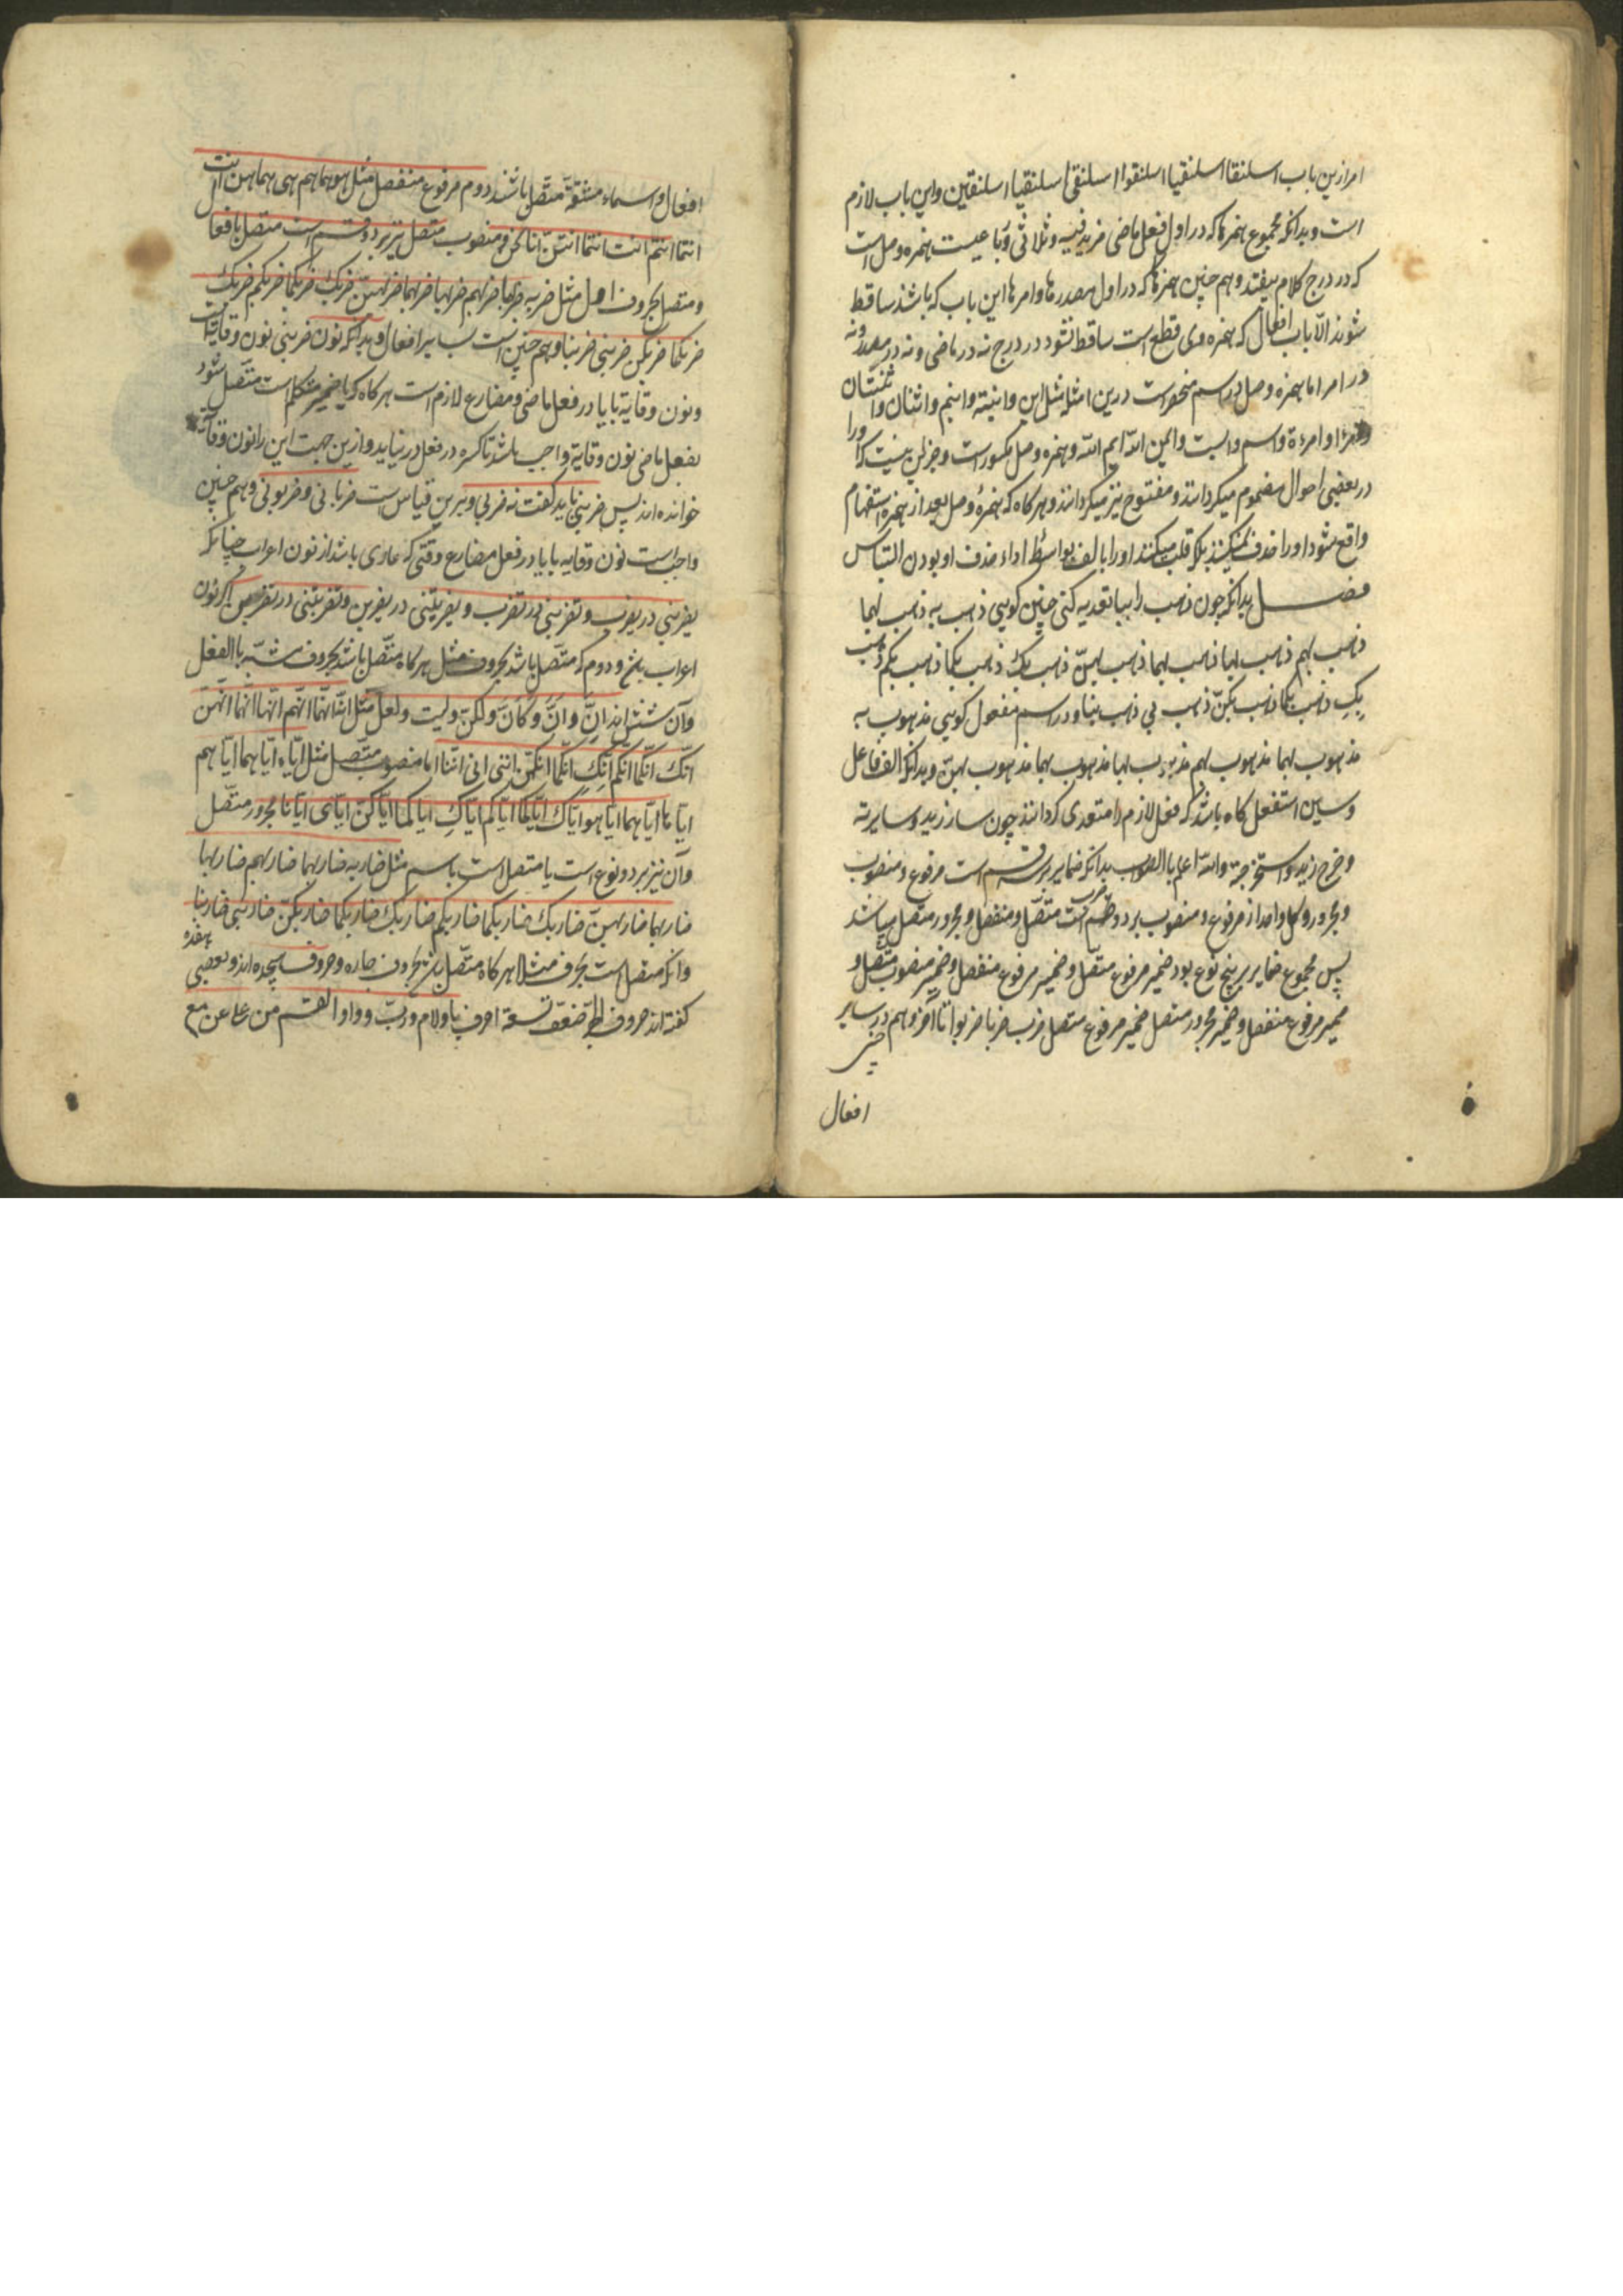 امر ازین باب اسلنقا اسلنقیا اسلنقوا اسلنقی اسلنقیا اسلنقین واین باب لازم
است وبدانکه مجموع همزها که در اول فعل ماضی مزید فیه وثلاثی ورباعیست همزه وصل است
که در درج کلام بیفتد وهم چنین همزها که در اول مصدرها وامرها این باب که باشد ساقط
شوند الّا باب افعال که همزه وی قطع است ساقط نشود در درج نه در ماضی ونه در مصدر ونه
در امر اما همزه وصل در اسم منحصر است درین امثله مثل ابن وابنة وابنم واثنان واثنتان
وامرء وامرءة واسم واست وایمن الله ایم الله وهمزه وصل مکسور است وجزاین نیست که او را
در بعضی احوال مضموم میکردانند ومفتوح نیز میکردانند وهرکاه که همزهٔ وصل بعد از همزه استفهام
واقع شود او را حذف نمیکنند بلکه قلب میکنند او را بالف بواسطهٔ اداء حذف او بودن التباس
فصل بدانکه چون ذهب را ببا تعدیه کنی چنین کویی ذهب به ذهب بهما
ذهب بهم ذهب بها ذهب بهما ذهب بهنّ ذهب بک ذهب بکما ذهب بکم ذهب
بکِ ذهب بکما ذهب بکنّ ذهب بی ذهب بنا ودر اسم مفعول کویی مذهوب به
مذهوب بهما مذهوب بهم مذهوب بها مذهوب بهما مذهوب بهنّ وبدانکه الف فاعل
وسین استفعل کاه باشد که فعل لازم را متعدی کردانند چون سار زید وسایرته
وخرج زید واستخرجته والله اعلم بالصواب بدانکه ضمایر بر سه قسم است مرفوع ومنصوب
ومجرور وکل واحد از مرفوع ومنصوب بر دو قسم است متصّل ومنفصل ومجرور متصّل میباشد
پس مجموع ضمایر بر پنج نوع بود ضمیر مرفوع متصّل وضمیر مرفوع منفصل وضمیر منصوب متّصل و
ضمیر مرفوع منفصل وضمیر مجرور متصل ضمیر مرفوع متصل ضرب ضربا ضربوا تا آخر وهم در سایر
افعال
افعال واسماء مشتقّه متّصل باشند دوم مرفوع منفصل مثل هو هما هم هی هما هن انت
انتما انتم انت انتما انتنّ انا نحن ومنصوب متصل نیز بر دو قسم است متصل بافعال
ومتصل بحروف اول مثل ضربه ضربهما ضربهم ضربها ضربهما ضربهنّ ضربک ضربکما ضربکم ضربک
ضربکما ضربکن ضربنی ضربنا وهم چنین است سایر افعال وبدانکه نون ضربنی نون وقایه است
ونون وقایة با یا در فعل ماضی ومضارع لازم است هرکاه که یا ضمیر متکلم است متّصل شود
بفعل ماضی نون وقایة واجب باشد تا کسره در فعل در نیاید وازین جهت این را نون وقایة
خوانده اند پس ضربنی باید کفت نه ضربی وبرین قیاس است ضربانی وضربونی وهم چنین
واجب است نون وقایه با یا در فعل مضارع وقتی که عاری باشد از نون اعراب چنانکه
یضربنی در یضرب وتضربنی در تضرب و یضربننی در یضربن وتضربننی در تضربین اکر نون
اعراب و دوم که متّصل باشد بحروف مثل هرکاه متّصل باشد بحروف مشبّه باالفعل
وآن شش اند انَّ وانَّ وکانَّ ولکنّ ولیت ولعل مثل انّه انّهما انّهم انّها انّهما انّهنّ
انّک انّکما انّکم انّکِ انّکما انّکنّ اننی انی اننا اما منصوب متّصل مثل ایّاه ایّاهما ایّاهم
ایّاها ایّاهما ایّاهو ایّاک ایّاکما ایّاکم ایّاکِ ایاکما ایّاکنّ ایّای ایّانا مجرور متّصل
وآن نیز بر دو نوع است یا متصل است باسم مثل ضاربه ضاربهما ضاربهم ضاربها
ضاربهما ضاربهنّ ضاربک ضاربکما ضاربکم ضاربک ضاربکما ضاربکنّ ضاربنی ضاربنا
وانکه متصل است بحرف مثلا هرکاه متّصل باشد بحروف جاره وحروف هیجده اند وبعضی هفده
کفته اند حروف تسعة احرف با ولام وربّ وواو القسم من علی عن مع